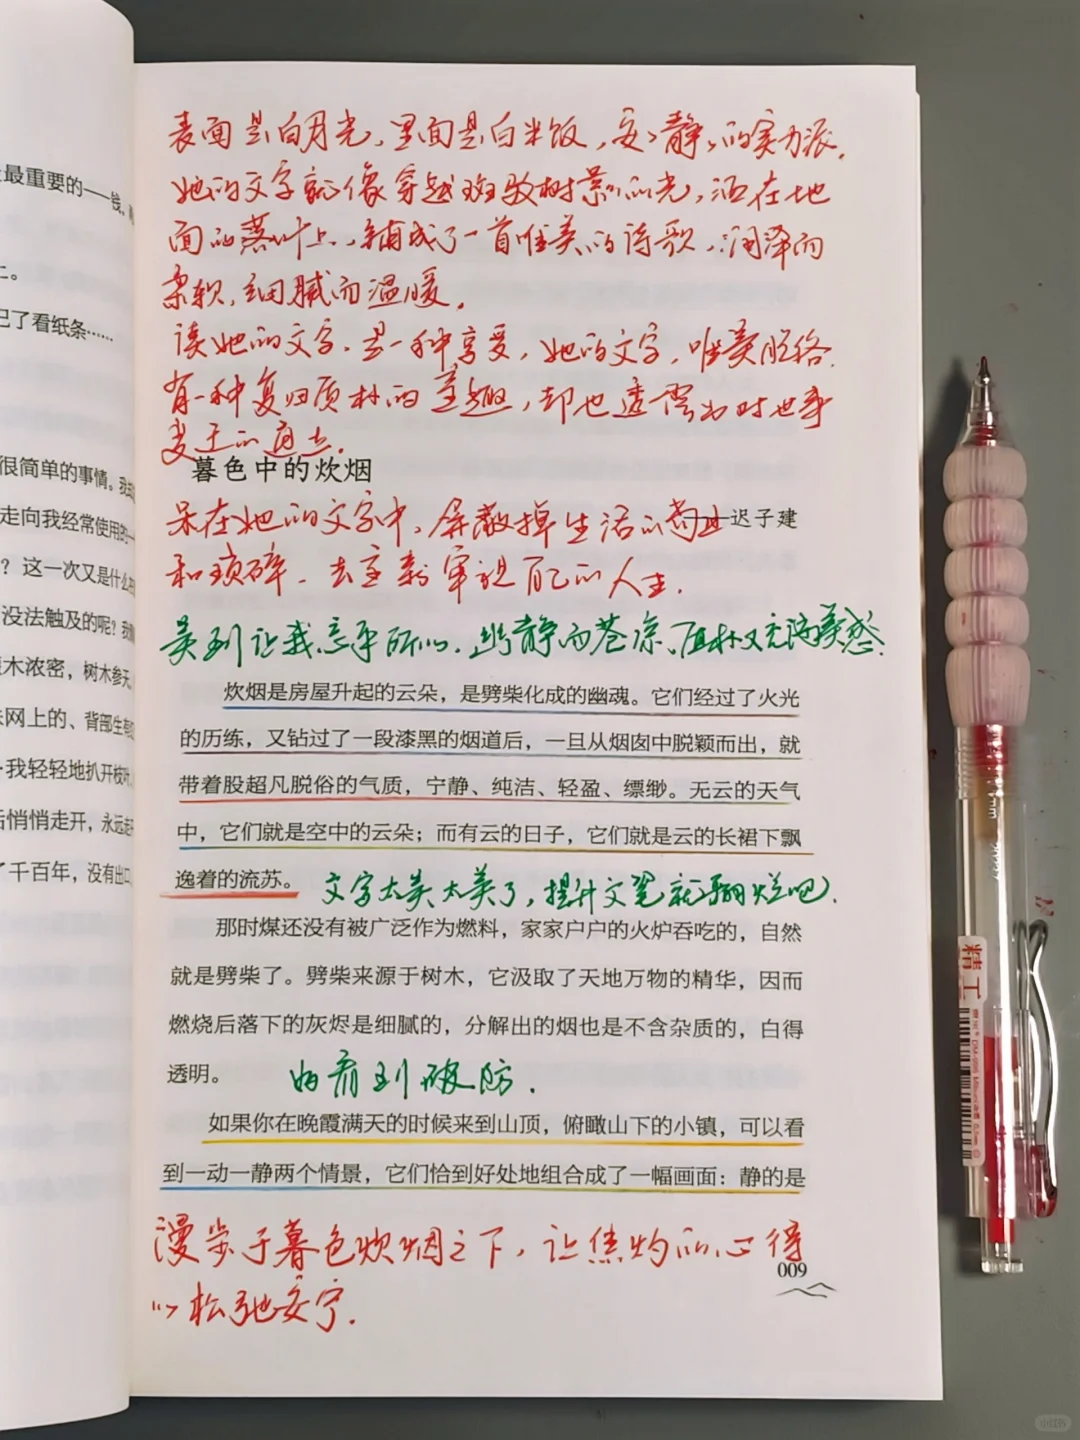 最重要的——钱。
上。
记了看纸条……
很简单的事情。我
走向我经常使用的一
？这一次又是什么
没法触及的呢？我
木浓密，树木参天，
网上的、背部生
我轻轻地扒开枝叶，
后悄悄走开，永远走
了千百年，没有出口
表面是白月光，里面是白米饭，安安静静的实力派。
她的文字就像穿越斑驳树影的光，洒在地
面的落叶上，铺成了一首唯美的诗歌，润泽而
柔软，细腻而温暖。
读她的文字，是一种享受，她的文字，唯美脱俗
有一种复归质朴的童趣，却也透露出对世事
变迁的
暮色中的炊烟
呆在她的文字中，屏蔽掉生活的苟且
——迟子建
和琐碎，去重新审视自己的人生。
美到让我忘乎所以，幽静而苍凉，质朴又充满美感
炊烟是房屋升起的云朵，是劈柴化成的幽魂。它们经过了火光
的历练，又钻过了一段漆黑的烟道后，一旦从烟囱中脱颖而出，就
带着股超凡脱俗的气质，宁静、纯洁、轻盈、缥缈。无云的天气
中，它们就是空中的云朵；而有云的日子，它们就是云的长裙下飘
逸着的流苏。
文字太美太美了，提升文笔就翻烂吧。
那时煤还没有被广泛作为燃料，家家户户的火炉吞吃的，自然
就是劈柴了。劈柴来源于树木，它汲取了天地万物的精华，因而
燃烧后落下的灰烬是细腻的，分解出的烟也是不含杂质的，白得
透明。
看到破防。
如果你在晚霞满天的时候来到山顶，俯瞰山下的小镇，可以看
到一动一静两个情景，它们恰到好处地组合成了一幅画面：静的是
漫步于暮色炊烟之下，让焦灼的心得
以松弛安宁。
009
精工
小红书